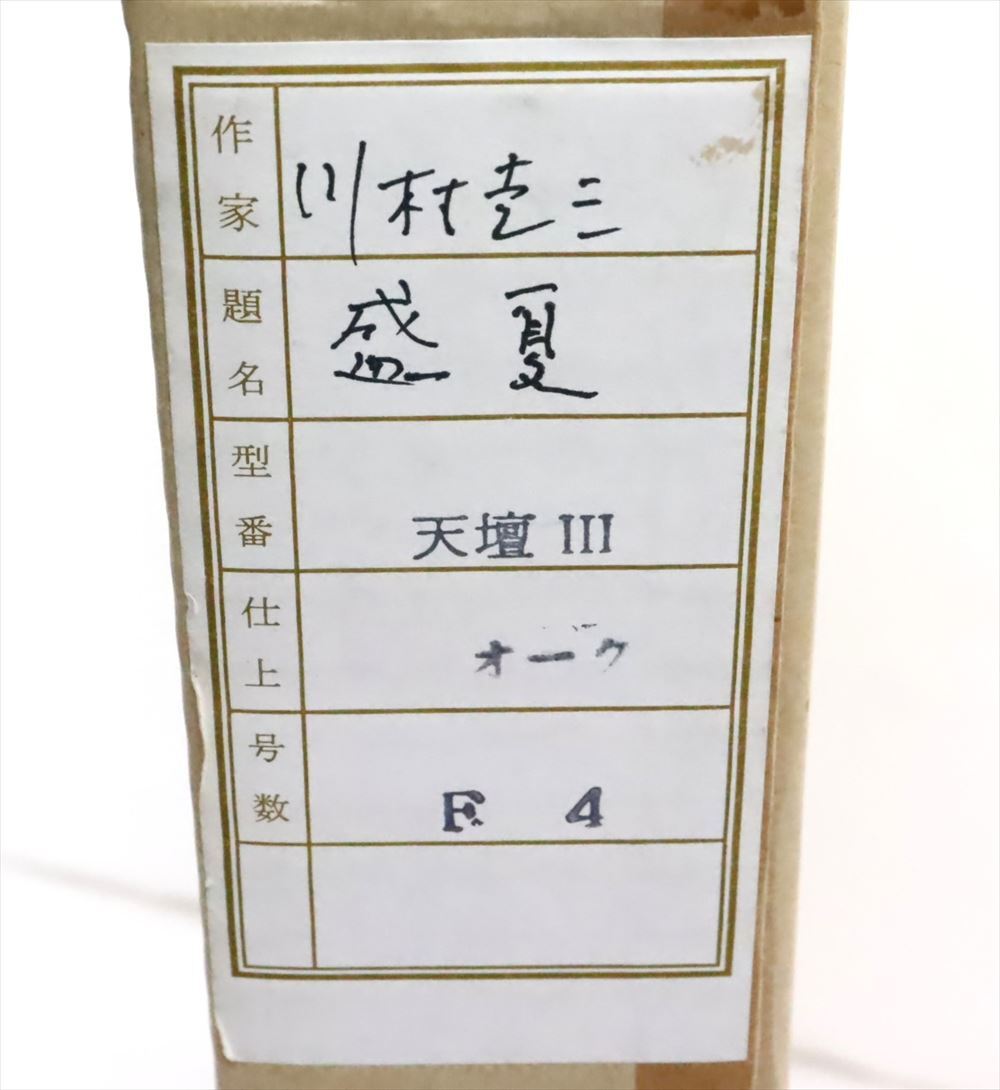 作家 川村圭三
題名 盛夏
型番 天壇 III
仕上 オーク
号数 F 4